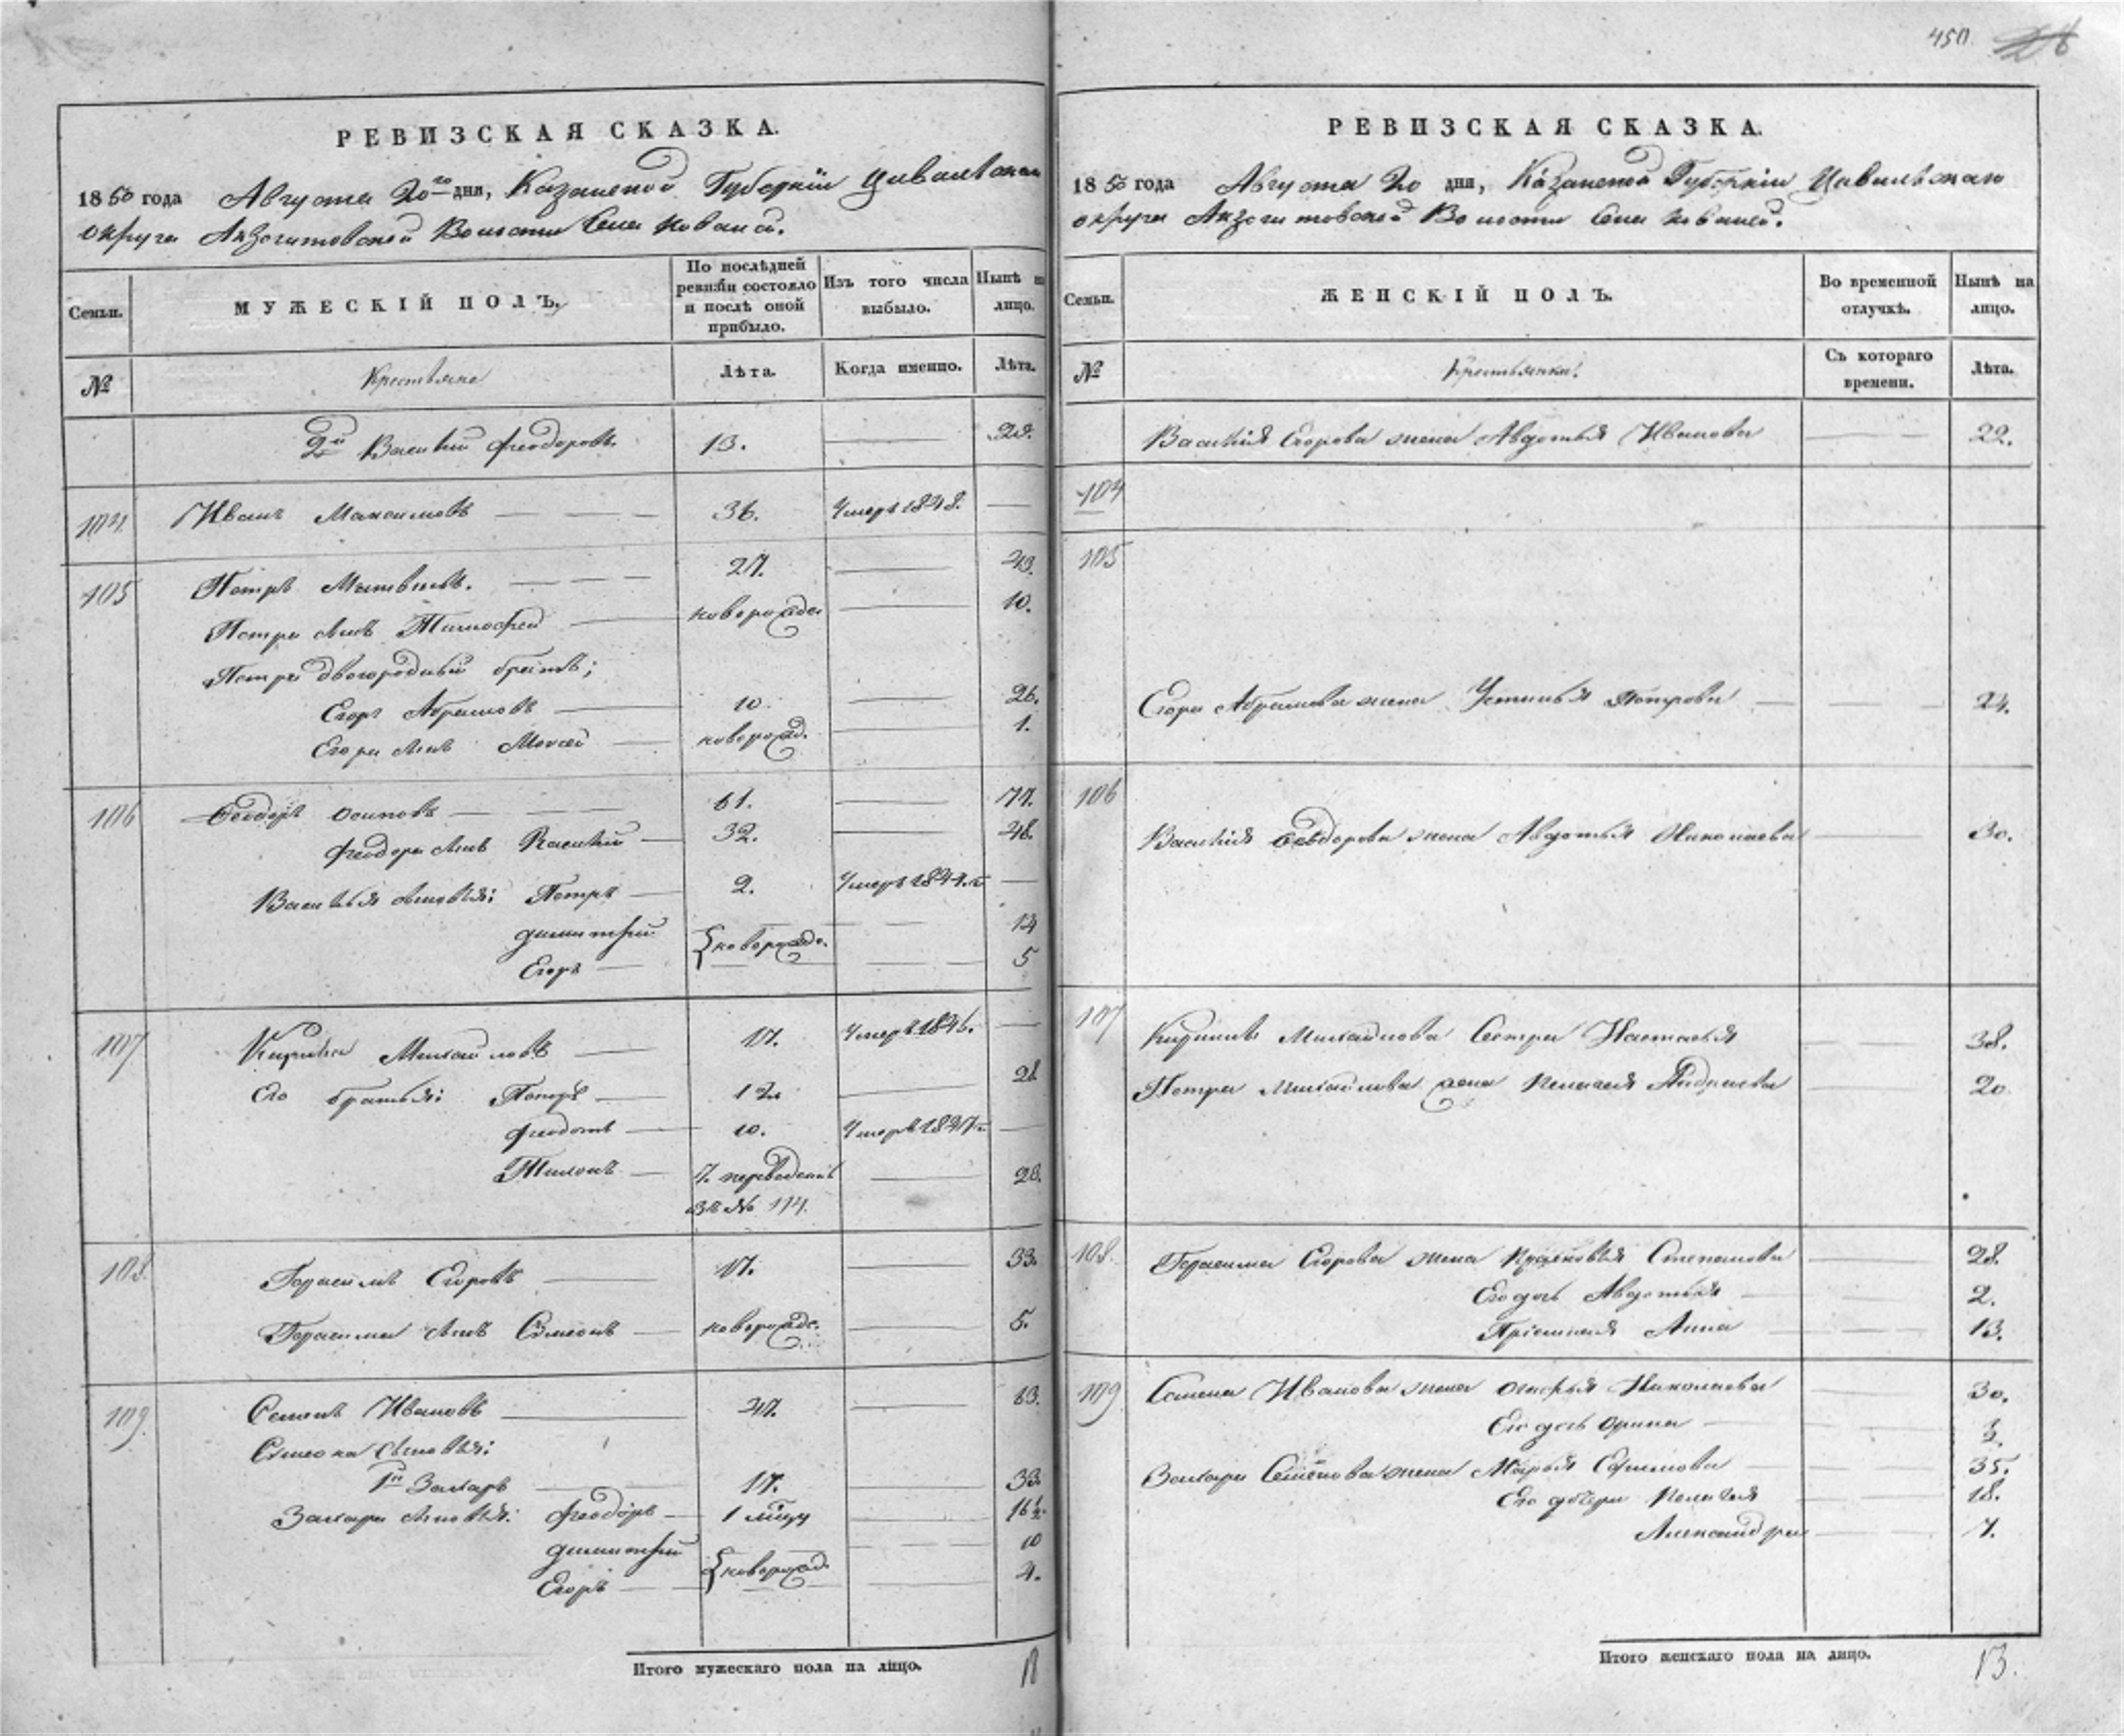 450.
РЕВИЗСКАЯ СКАЗКА.
1850 года Августа 20го дня, Казанской Губерніи Цивильскаго
округа Акзегитовской Волости Села Ковалей.
Семьи.
МУЖЕСКІЙ ПОЛЪ.
По послѣдней ревизіи состояло и послѣ оной прибыло.
Изъ того числа выбыло.
Нынѣ на лицо.
№
Крестьяне
Лѣта.
Когда именно.
Лѣта.
2й Василій Феодоровъ. 13.
104. Иванъ Максимовъ 36. Умеръ 1848.
105 Петръ Матвѣевъ. 27. 43.
Петра сынъ Тимофей новорожде 10.
Петра двоюродный братъ;
Егоръ Абрамовъ 10. 26.
Егора сынъ Моисей новорожд. 1.
106 Ѳеодоръ Осиповъ 61. 77.
Феодора сынъ Василій 32. 48.
Василья сыновья: Петръ 2. Умеръ 1844.г
Димитрій новорожде. 14
Егоръ 5
107 Кирила Михайловъ 17. Умеръ 1846.
Его братья: Петръ 12 28
Феодотъ 10. Умеръ 1847г.
Тихонъ 7. переведенъ 23.
въ № 114.
108. Герасимъ Егоровъ 17. 33.
Герасима сынъ Симеонъ новорожде. 5.
109. Семенъ Ивановъ 47. 63.
Симеона сыновья:
1й Захаръ 17. 33
Захара сыновья: Феодоръ 1 мѣсяц 16½.
Димитрій новорожд. 10
Егоръ 4.
Итого мужескаго пола на лицо.
РЕВИЗСКАЯ СКАЗКА.
1850 года Августа 20 дня, Казанской Губерніи Цивильскаго
округа Акзегитовской Волости Села Ковалей.
Семьи.
ЖЕНСКІЙ ПОЛЪ.
Во временной отлучкѣ.
Нынѣ на лицо.
№
Крестьянки.
Съ котораго времени.
Лѣта.
Василія Егорова жена Авдотья Иванова 22.
104
105
Егора Абрамова жена Устинья Петрова 24.
106
Василія Ѳеодорова жена Авдотья Николаева 30.
107 Кирилы Михайлова Сестра Настасья 38.
Петра Михайлова жена Пелагея Андреева 20.
108. Герасима Егорова жена Прасковья Степанова 28.
Его дочь Авдотья 2.
Пріемная Анна 13.
109. Семена Иванова жена Марья Николаева 30.
Его дочь Орина 3.
Захара Семенова жена Марья Ефимова 35.
Его дочери Пелагея 18.
Александра 7.
Итого женскаго пола на лицо. 13.